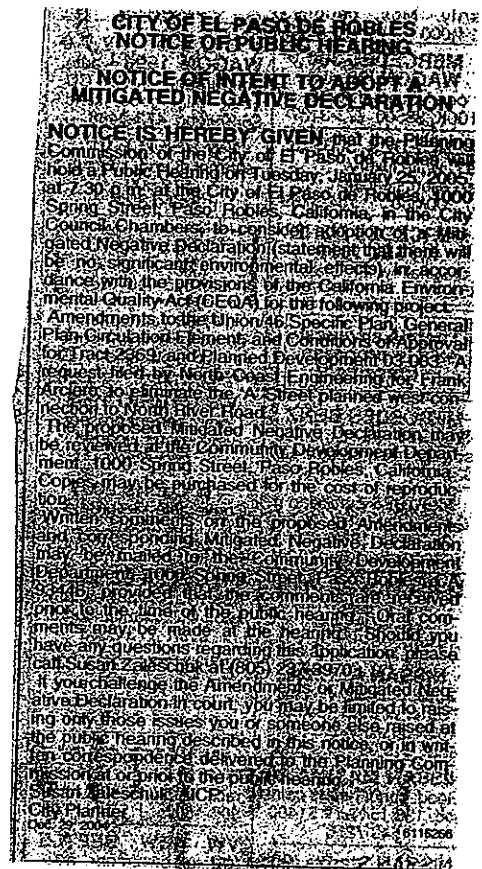 CITY OF EL PASO DE ROBLES
NOTICE OF PUBLIC HEARING
NOTICE OF INTENT TO ADOPT A
MITIGATED NEGATIVE DECLARATION
NOTICE IS HEREBY GIVEN that the Planning
Commission of the City of El Paso de Robles will
hold a Public Hearing on Tuesday, January 25, 2005,
at 7:30 p.m. at the City of El Paso de Robles, 1000
Spring Street, Paso Robles, California, in the City
Council Chambers, to consider adoption of a Miti-
gated Negative Declaration (statement that there will
be no significant environmental effects) in accor-
dance with the provisions of the California Environ-
mental Quality Act (CEQA) for the following project:
Amendments to the Union/46 Specific Plan, General
Plan Circulation Element, and Conditions of Approval
for Tract and Planned Development A
request filed by North Coast Engineering for Frank
Arciero to eliminate the "A" Street planned west con-
nection to North River Road.
The proposed Mitigated Negative Declaration may
be reviewed at the Community Development Depart-
ment, 1000 Spring Street, Paso Robles, California.
Copies may be purchased for the cost of reproduc-
tion.
Written comments on the proposed Amendments
and corresponding Mitigated Negative Declaration
may be mailed to the Community Development
Department, 1000 Spring Street, Paso Robles, CA
provided that the comments are received
prior to the time of the public hearing. Oral com-
ments may be made at the hearing. Should you
have any questions regarding this application, please
call Susan Zaleschuk at (805)
If you challenge the Amendments or Mitigated Neg-
ative Declaration in court, you may be limited to rais-
ing only those issues you or someone else raised at
the public hearing described in this notice, or in writ-
ten correspondence delivered to the Planning Com-
mission at or prior to the public hearing.
Susan Zaleschuk, AICP
City Planner
Dec. 2004